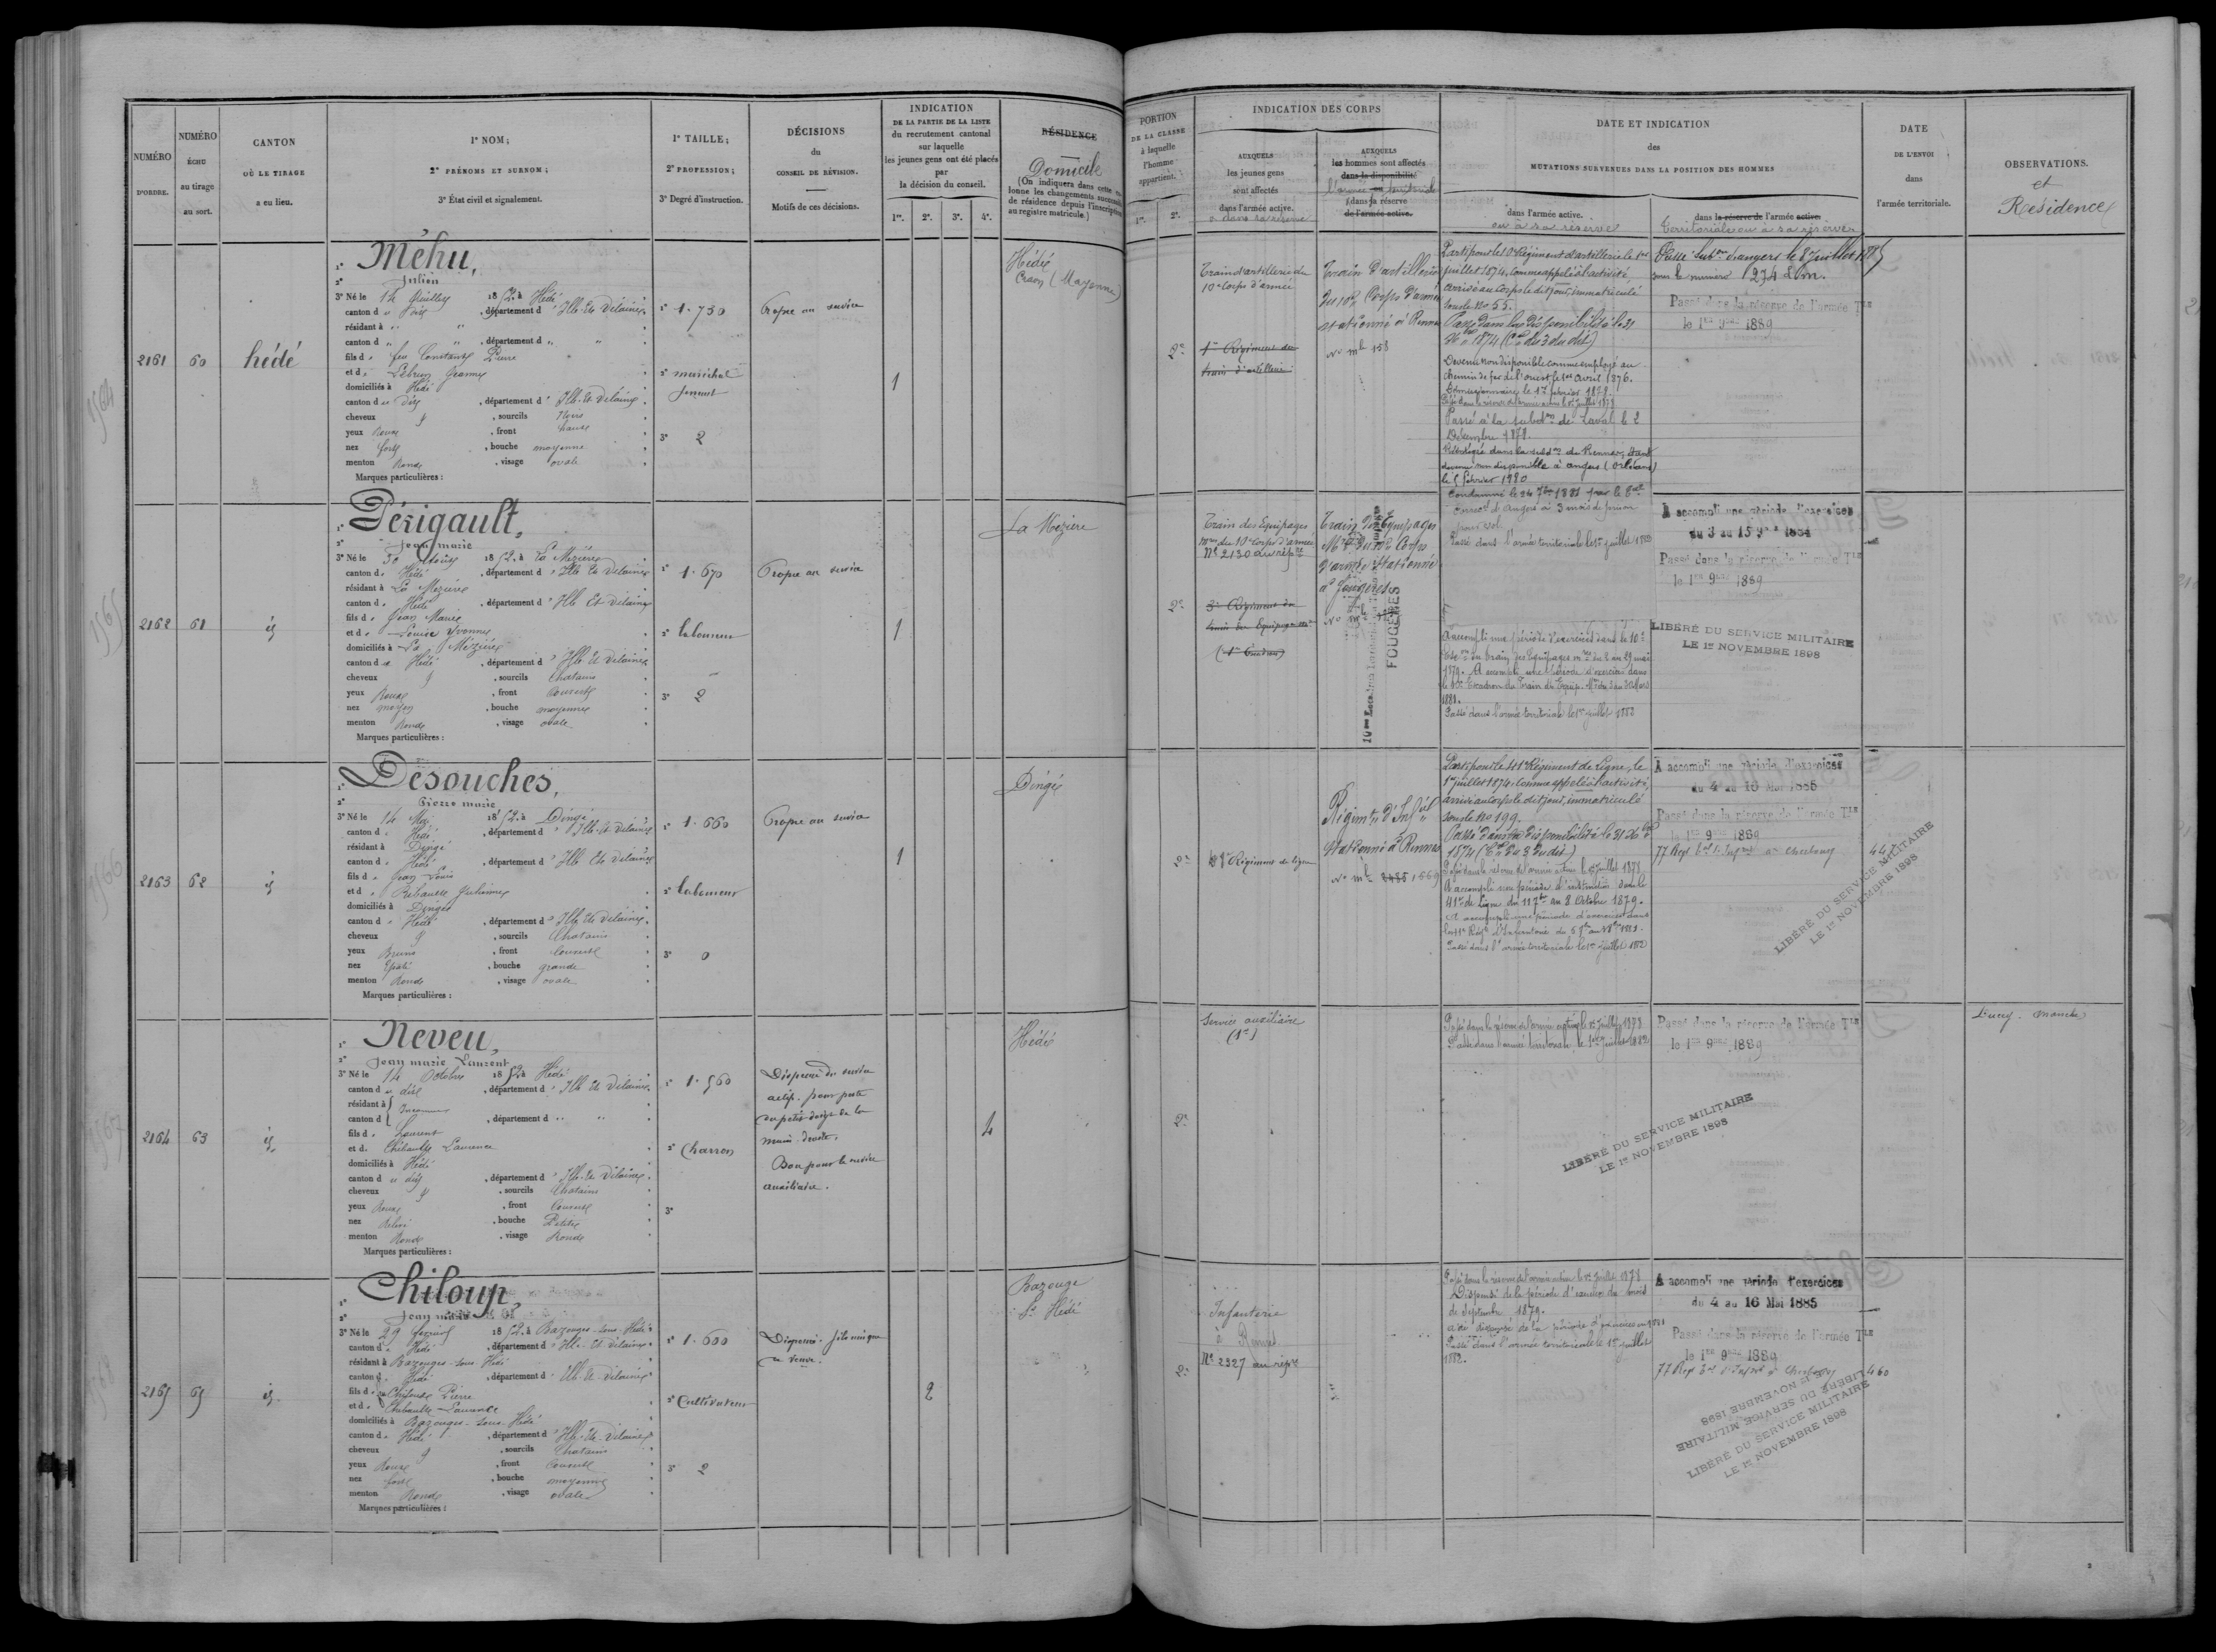 NUMÉRO
D'ORDRE.
NUMÉRO
ÉCHU
au tirage
au sort.
CANTON
OÙ LE TIRAGE
a eu lieu.
1° NOM;
2° PRÉNOMS ET SURNOM;
3° État civil et signalement.
1° TAILLE;
2° PROFESSION;
3° Degré d'instruction.
DÉCISIONS
du
CONSEIL DE RÉVISION.
Motifs de ces décisions.
INDICATION
DE LA PARTIE DE LA LISTE
du recrutement cantonal
sur laquelle
les jeunes gens ont été placés
par
la décision du conseil.
1re. 2e. 3e. 4e.
RÉSIDENCE
Domicile
(On indiquera dans cette co-
lonne les changements successifs
de résidence depuis l'inscription
au registre matricule.)
PORTION
DE LA CLASSE
à laquelle
l'homme
appartient.
1re. 2e.
INDICATION DES CORPS
AUXQUELS
les jeunes gens
sont affectés
dans l'armée active.
o dans sa réserve
AUXQUELS
les hommes sont affectés
dans la disponibilité
l'armée ou territoriale
dans sa réserve
de l'armée active.
DATE ET INDICATION
des
MUTATIONS SURVENUES DANS LA POSITION DES HOMMES
dans l'armée active.
ou à sa réserve
dans la réserve de l'armée active
territoriale ou à sa réserve
DATE
DE L'ENVOI
dans
l'armée territoriale.
OBSERVATIONS.
et
Résidence
2161
60
hédé
1° Méhu,
2° Julien
3° Né le 14 Juillet 1852 à Hédé
canton d u dit, département d' Ille-Et-Vilaine
résidant à " "
canton d " , département d " "
fils d e feu Constant Pierre
et d e Lebrun Jeanne
domiciliés à Hédé
canton d u dit, département d' Ille-Et-Vilaine
cheveux , sourcils Noirs
yeux Roux, front haut
nez fort, bouche moyenne
menton Rond, visage ovale
Marques particulières :
1° 1.750
2° maréchal
ferrant
3° 2
Propre au service
1
Hédé
Craon (Mayenne)
2e
Train d'artillerie du
10e Corps d'armée
1er Régiment du
train d'artillerie
Train d'artillerie
du 10e Corps d'armée
stationné à Rennes
No mle 158
Parti pour le 10e Régiment d'artillerie le 1er
juillet 1874, comme appelé à l'activité
arrivé au corps le dit jour, immatriculé
sous le No 55.
Passé dans la disponibilité le 31
Xbre 1874 (Cre du 3 du dit)
Devenu non disponible comme employé au
Chemin de fer de l'ouest le 1er Avril 1876.
Démissionnaire le 17 février 1878.
Passé dans la réserve de l'armée active le 1er Juillet 1878
Passé à la subdon de Laval le 2
Décembre 1878.
Réintégré dans la subdon de Rennes, étant
devenu non disponible à angers (orléans)
le 5 février 1880
Condamné le 24 7bre 1881 par le tal
correct d'Angers à 3 mois de prison
pour vol
Passé dans l'armée territoriale le 1er juillet 1883
Passé Subon d'angers le 8 juillet 1885
sous le numéro 1274 Lon.
Passé dans la réserve de l'armée TLE
le 1er 9bre 1889
2162
61
id
1° Périgault,
2° Jean marie
3° Né le 30 Août 1852 à La Mézière
canton d e Hédé, département d' Ille Et Vilaine
résidant à La Mézière
canton d e Hédé, département d' Ille Et Vilaine
fils d e Jean Marie
et d e Louise Yvonne
domiciliés à La Mézière
canton d e Hédé, département d' Ille Et Vilaine
cheveux , sourcils Chatains
yeux Roux, front Couvert
nez moyen, bouche moyenne
menton Rond, visage ovale
Marques particulières :
1° 1.670
2° laboureur
3° 2
Propre au service
1
La Mézière
2e
Train des Equipages
mres du 10e Corps d'armée
No 2130 au répre
3e Régiment du
train des Equipages mres
(1er Escadron)
Train des Equipages
Mres du 10e Corps
d'armée Stationné
à Fougères
FOUGÈRES
A accompli une période d'exercices dans le 10e
Escon du train des Equipages mres du 2 au 29 mai
1879. A accompli une période d'exercices dans
le 10e Escadron du Train des Equip. Mres du 3 au 30 Mars
1881.
Passé dans l'armée territoriale le 1er juillet 1882
A accompli une période d'exercices
du 3 au 15 9bre 1884
Passé dans la réserve de l'armée TLE
le 1er 9bre 1889
LIBÉRÉ DU SERVICE MILITAIRE
LE 1er NOVEMBRE 1898
2163
62
id
1° Désouches,
2° Pierre marie
3° Né le 14 Mai 1852 à Dingé
canton d e Hédé, département d' Ille-Et-Vilaine
résidant à Dingé
canton d e Hédé, département d' Ille Et Vilaine
fils d e Jean Louis
et d e Rebault Julienne
domiciliés à Dingé
canton d e Hédé, département d' Ille Et Vilaine
cheveux , sourcils Chatains
yeux Bruns, front Couvert
nez Epaté, bouche grande
menton Rond, visage ovale
Marques particulières :
1° 1.660
2° laboureur
3° 0
Propre au service
1
Dingé
2e
41e Régiment de ligne
Régimt d'Infie
stationné à Rennes
No mle 2485 1669
Parti pour le 41e Régiment de Ligne, le
1er juillet 1874, comme appelé à l'activité,
arrivé au corps le dit jour, immatriculé
sous le No 199.
Passé dans la disponibilité le 31 Xbre
1874 (Cre du 3 du dit)
Passé dans la réserve de l'armée active le 1er Juillet 1878
A accompli une période d'instruction dans le
41e de Ligne du 11 7bre au 8 Octobre 1879.
A accompli une période d'exercices dans
Passé dans l'armée territoriale le 1er juillet 1882
A accompli une période d'exercices
du 4 au 16 Mai 1885
Passé dans la réserve de l'armée TLE
le 1er 9bre 1889
77 Regt tal d'Infrie à Cherbourg
447
LIBÉRÉ DU SERVICE MILITAIRE
LE 1er NOVEMBRE 1898
2164
63
id
1° Neveu,
2° Jean marie Laurent
3° Né le 14 Octobre 1852 à Hédé
canton d u dit, département d' Ille Et Vilaine
résidant à Inconnu
canton d , département d " "
fils d e Laurent
et d e Thébault Laurence
domiciliés à Hédé
canton d u dit, département d' Ille-Et-Vilaine
cheveux , sourcils Chatains
yeux Roux, front Couvert
nez Relevé, bouche Petite
menton Rond, visage Rond
Marques particulières :
1° 1.560
2° Charron
3°
Dispensé du service
actif. pour perte
du petit doigt de la
main droite.
Bon pour le service
auxiliaire.
4
Hédé
2e
Service auxiliaire
(1e)
Passé dans la réserve de l'armée active le 1er Juillet 1878
Passé dans l'armée territoriale le 1er juillet 1882
Passé dans la réserve de l'armée TLE
le 1er 9bre 1889
LIBÉRÉ DU SERVICE MILITAIRE
LE 1er NOVEMBRE 1898
Ducey. Manche
2165
65
id
1° Chiloup,
2° Jean marie
3° Né le 29 1852 à Bazouges-sous-Hédé
canton d e Hédé, département d' Ille-Et-Vilaine
résidant à Bazouges-sous-Hédé
canton d e Hédé, département d' Ille-Et-Vilaine
fils d e feu Chiloup Pierre
et d e Thébault Laurence
domiciliés à Bazouges-sous-Hédé
canton d e Hédé, département d' Ille-Et-Vilaine
cheveux , sourcils Chatains
yeux Roux, front Couvert
nez fort, bouche moyenne
menton Rond, visage ovale
Marques particulières :
1° 1.600
2° Cultivateur
3° 2
Dispensé. fils unique
de veuve.
2
Bazouge
s. Hédé
2e
Infanterie
à Rennes
No 2327 au répre
Passé dans la réserve de l'armée active le 1er Juillet 1878
Dispensé de la période d'exercices du mois
de Septembre 1879.
a été dispensé de la période d'exercices en 1881
Passé dans l'armée territoriale le 1er juillet
1882.
A accompli une période d'exercices
du 4 au 16 Mai 1885
Passé dans la réserve de l'armée TLE
le 1er 9bre 1889
77 Regt tal d'Infrie à Cherbourg
460
LIBÉRÉ DU SERVICE MILITAIRE
LE 1er NOVEMBRE 1898
LIBÉRÉ DU SERVICE MILITAIRE
LE 1er NOVEMBRE 1898